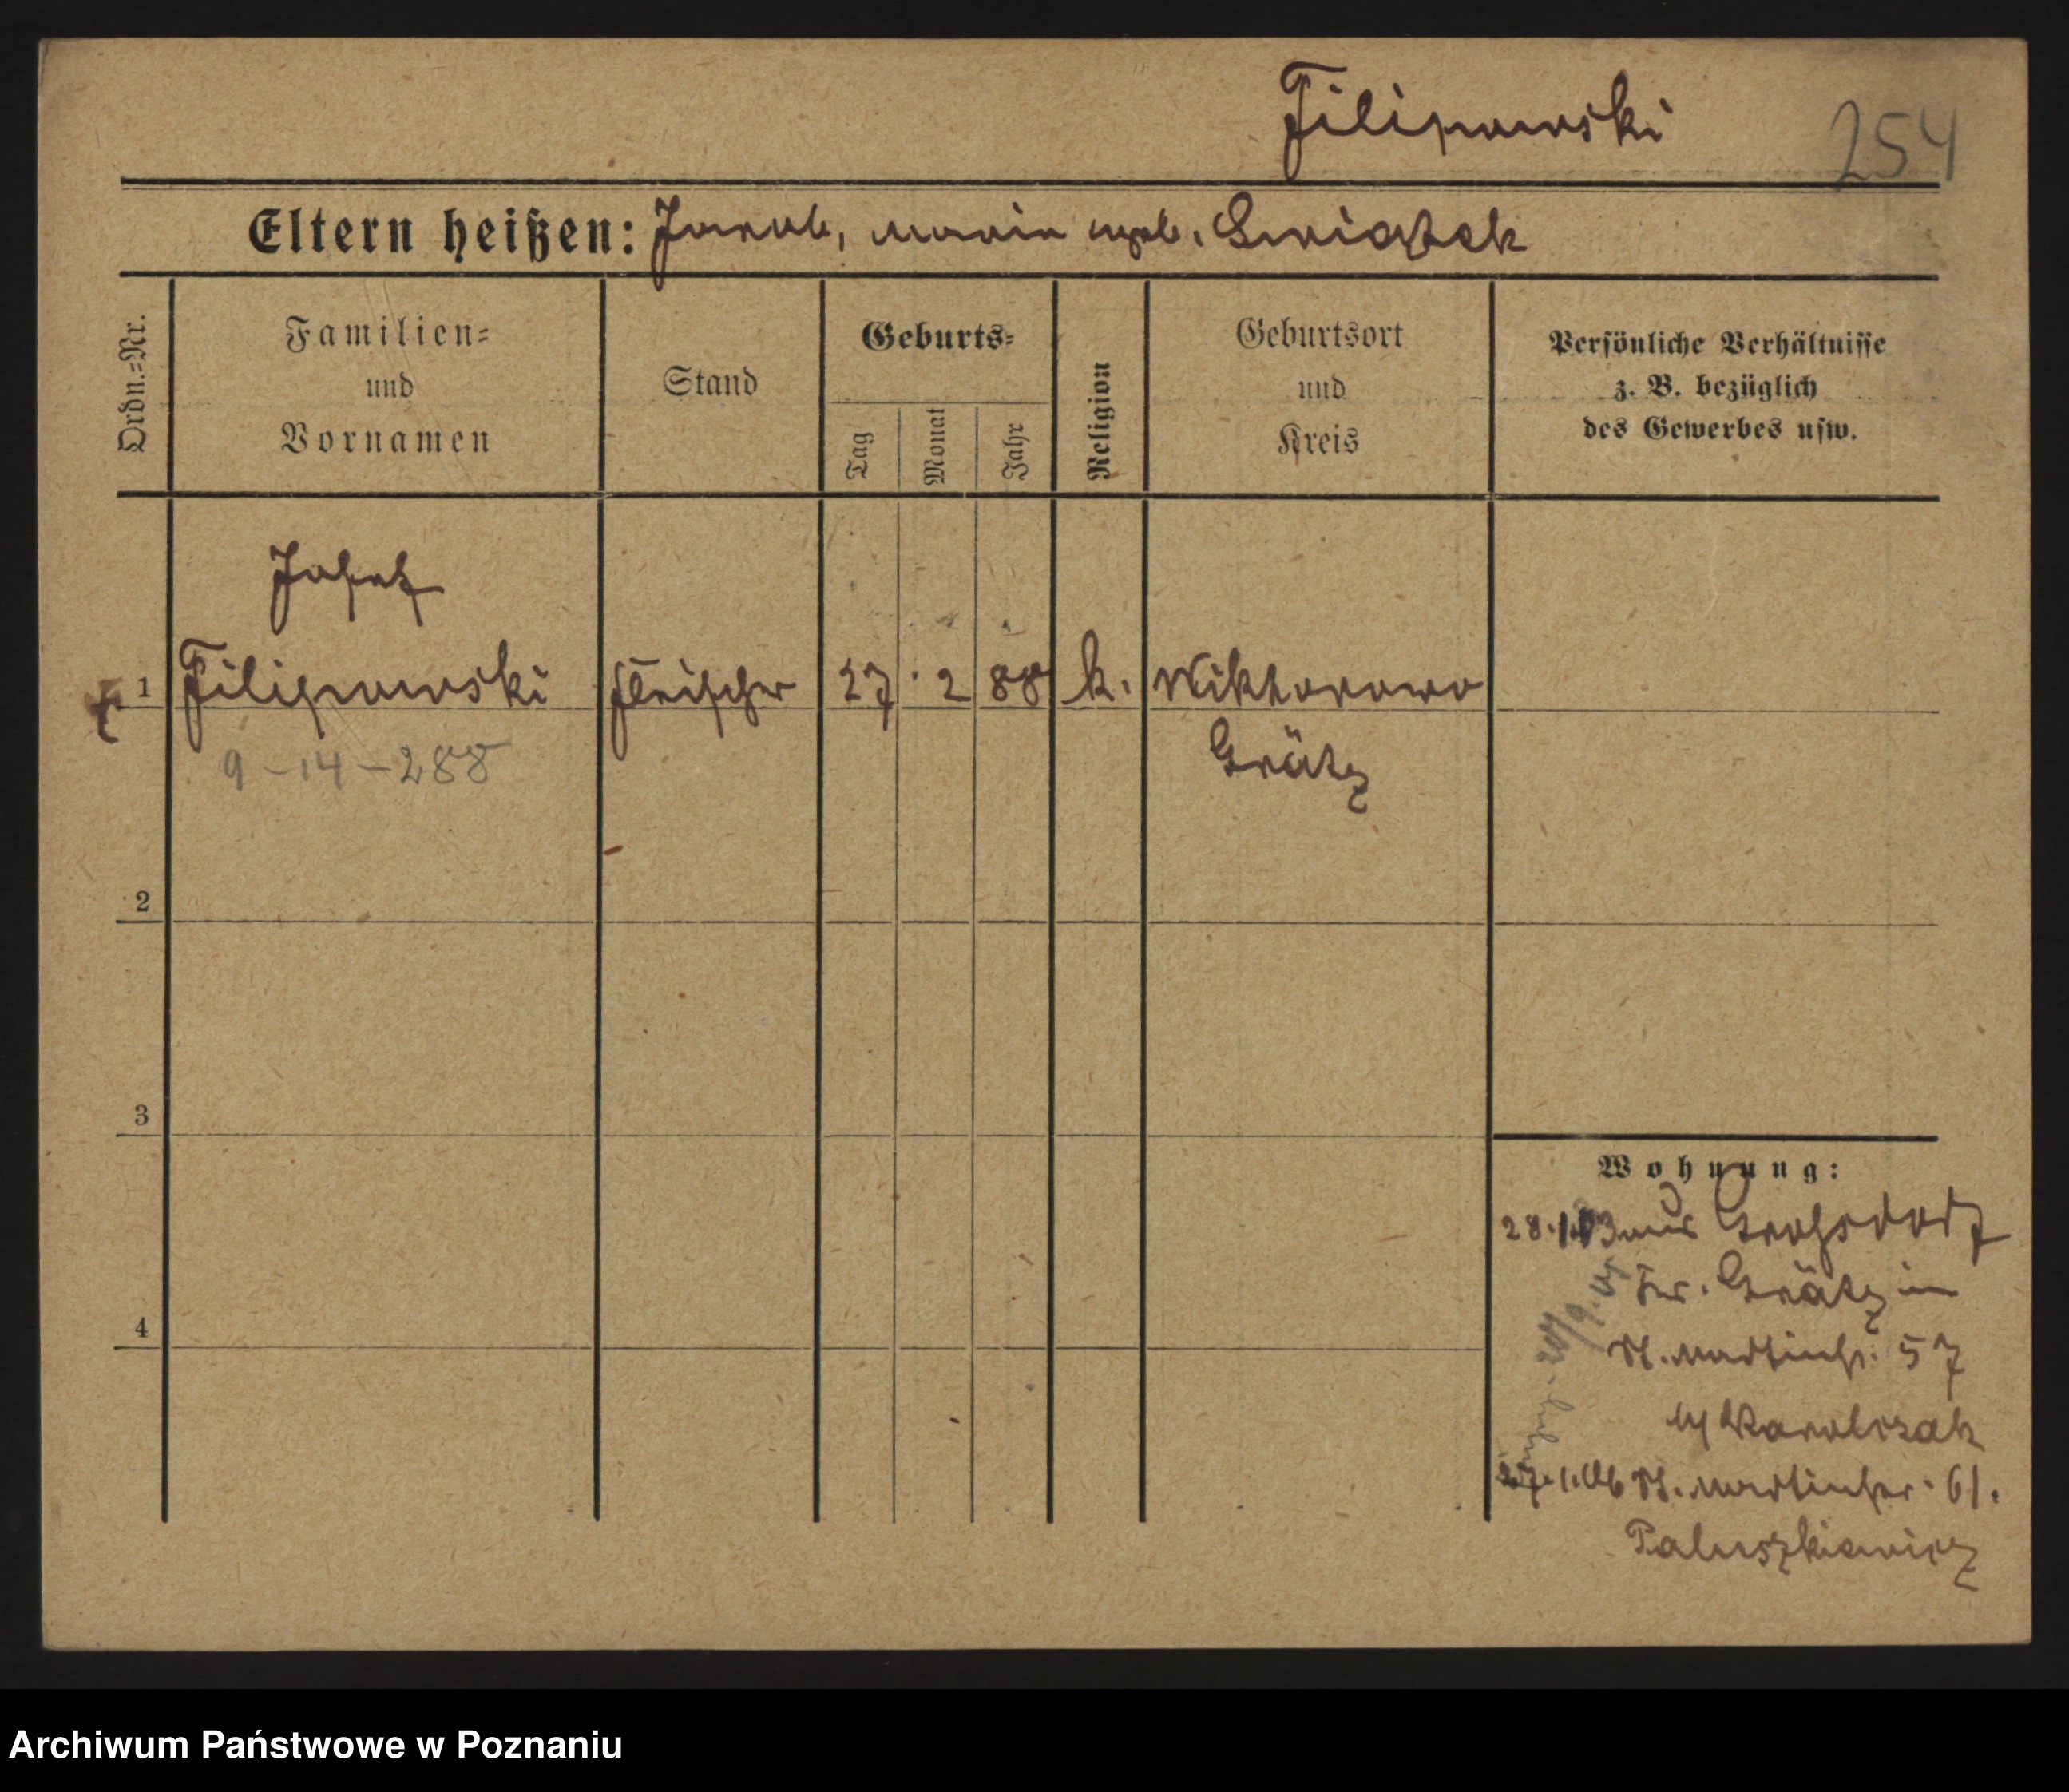 Filipowski
254
Eltern heißen: Jacob, Maria geb. Swiatek
Ordn.-Nr.
Familien-
und
Vornamen
Stand
Geburts-
Tag
Monat
Jahr
Religion
Geburtsort
und
Kreis
Persönliche Verhältnisse
z. B. bezüglich
des Gewerbes usw.
Josef
1 Filipowski Fleischer 27. 2 88 k. Wiktorowo
9-14-288
Grätz
2
3
4
Wohnung:
28.1.03 aus Grossdorf
Kr. Grätz in
St. Martinstr. 57
Karolczak
27.1.06 St. Martinstr. 61.
Paluszkiewicz
Archiwum Państwowe w Poznaniu